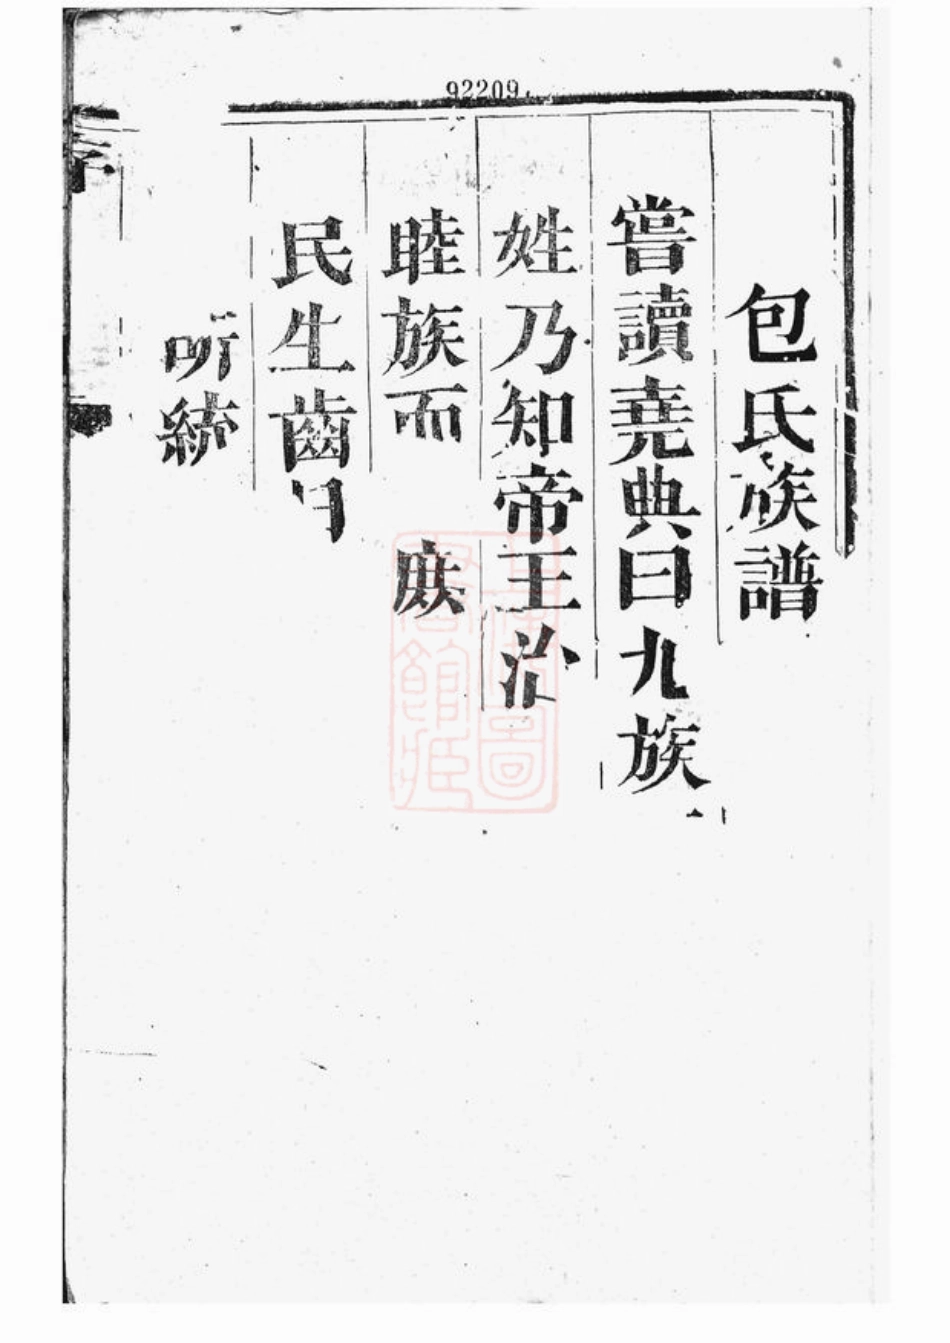 92209
包氏族譜
嘗讀堯典曰九族
姓乃知帝王治
睦族而 庶
民生齒
所統